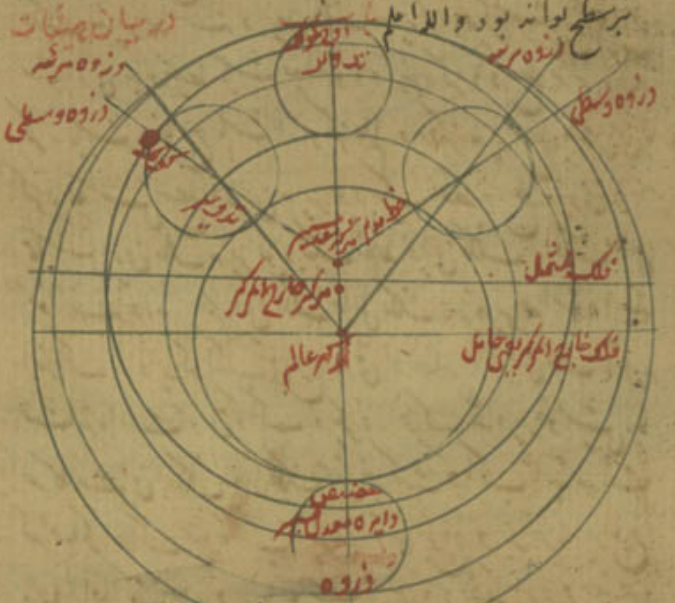 بر سطح تواند بود والله اعلم
در بیان
ذروه مرئیه
ذروه مرئیه
ذروه وسطی
ذروه وسطی
تدویر
کوکب
تدویر
مرکز معدل مسیر
مرکز خارج المرکز
مرکز عالم
فلک ممثل
فلک خارج المرکز حامل
حضیض
دایره معدل مسیر
ذروه